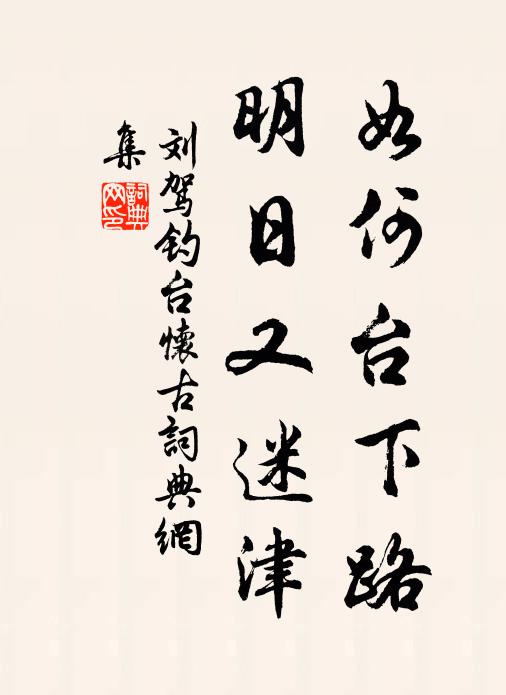 如何台下路
明日又迷津
刘驾钓台懷古詞典網
集
詞典
网印